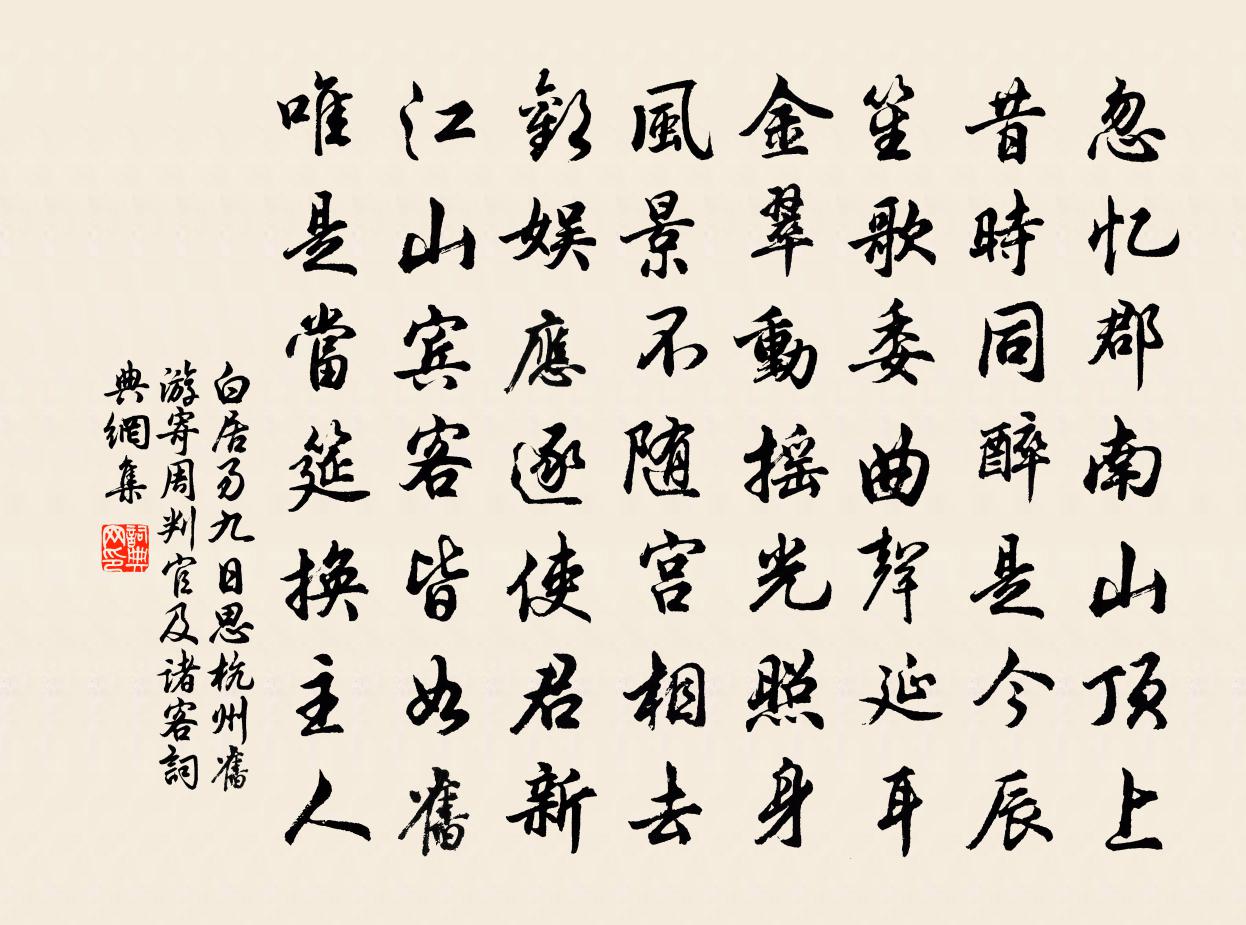 忽忆郡南山顶上
昔時同醉是今辰
笙歌委曲聲延耳
金翠動摇光照身
風景不随宫相去
歡娱應逐使君新
江山宾客皆如舊
唯是當筵換主人
白居易九日思杭州舊
游寄周判官及诸客詞
典網集
詞典
网印